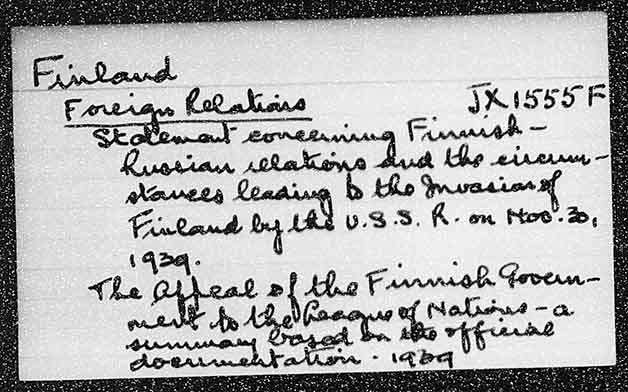 Finland
Foreign Relations JX1555F
Statement concerning Finnish-
Russian relations and the circum-
stances leading to the Invasion of
Finland by the U.S.S.R. on Nov. 30,
1939.
The Appeal of the Finnish Govern-
ment to the League of Nations - a
summary based on its official
documentation. 1939